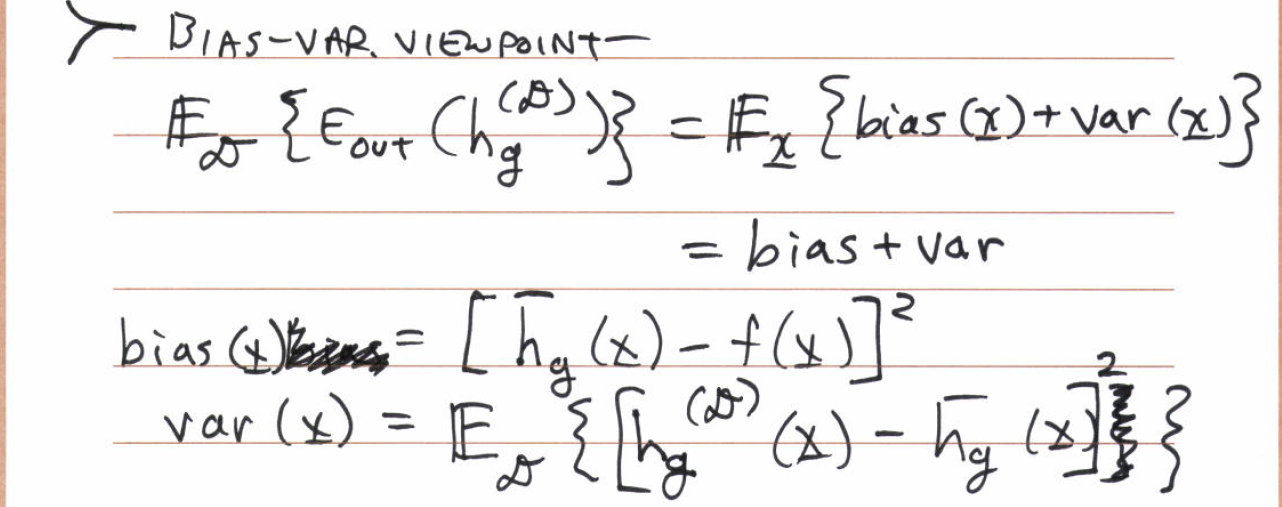 ➢ BIAS-VAR. VIEWPOINT—
𝔼_𝒟 {E_out (h_g^(𝒟))} = 𝔼_x̲ {bias (x̲) + var (x̲)}
= bias + var
bias (x̲) = [h̄_g (x̲) − f(x̲)]²
var (x̲) = 𝔼_𝒟 {[h_g^(𝒟) (x̲) − h̄_g (x̲)]²}